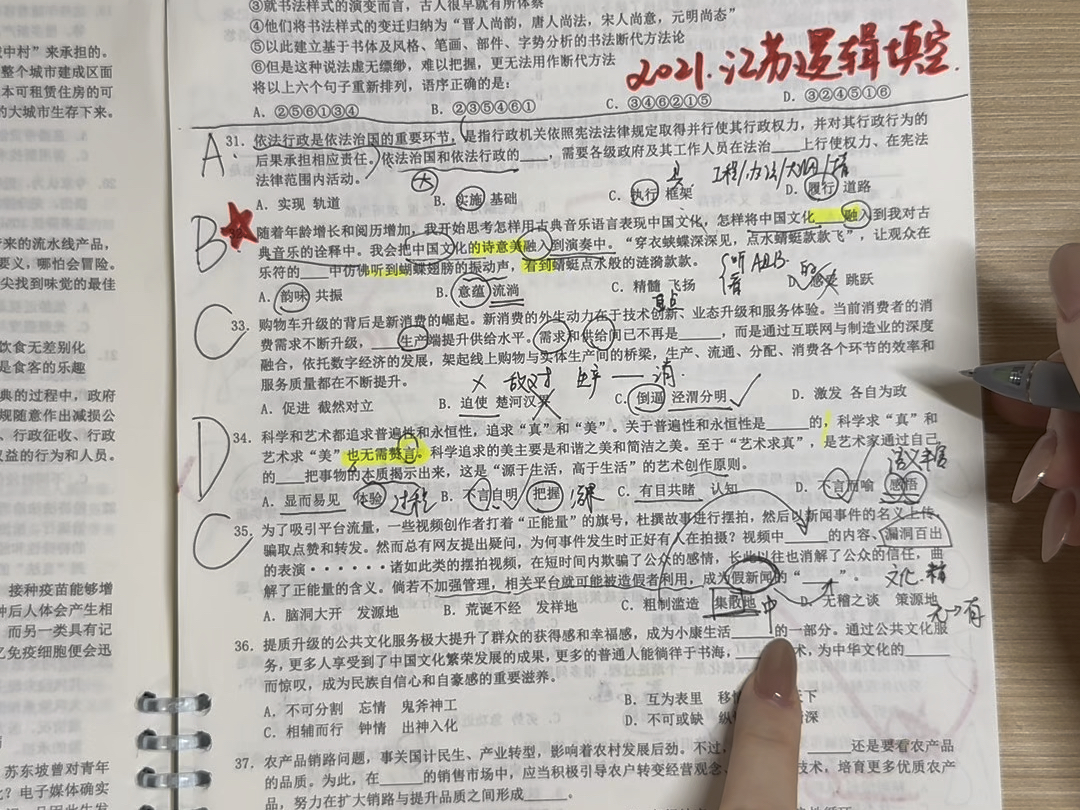 ③就书法样式的演变而言，古人很早就有所体察
④他们将书法样式的变迁归纳为“晋人尚韵，唐人尚法，宋人尚意，元明尚态”
⑤以此建立基于书体及风格、笔画、部件、字势分析的书法断代方法论
⑥但是这种说法虚无缥缈，难以把握，更无法用作断代方法
将以上六个句子重新排列，语序正确的是：
A. ②⑤⑥①③④ B. ②③⑤④⑥① C. ③④⑥②①⑤ D. ③②④⑤①⑥
2021.江苏逻辑填空.
A.
31. 依法行政是依法治国的重要环节，是指行政机关依照宪法法律规定取得并行使其行政权力，并对其行政行为的
后果承担相应责任。依法治国和依法行政的____，需要各级政府及其工作人员在法治____上行使权力、在宪法
法律范围内活动。
大
工程/办法/大纲/措
A. 实现 轨道 B. 实施 基础 C. 执行 框架 D. 履行 道路
B
随着年龄增长和阅历增加，我开始思考怎样用古典音乐语言表现中国文化，怎样将中国文化____融入到我对古
典音乐的诠释中。我会把中国文化的诗意美融入到演奏中。“穿衣蛱蝶深深见，点水蜻蜓款款飞”，让观众在
乐符的____中仿佛听到蝴蝶翅膀的振动声，看到蜻蜓点水般的涟漪款款。
听 AB
A. 韵味 共振 B. 意蕴 流淌 C. 精髓 飞扬 D. 感受 跳跃
C
33. 购物车升级的背后是新消费的崛起。新消费的外生动力在于技术创新、业态升级和服务体验。当前消费者的消
费需求不断升级，____生产端提升供给水平。需求和供给间已不再是____，而是通过互联网与制造业的深度
融合，依托数字经济的发展，架起线上购物与实体生产间的桥梁，生产、流通、分配、消费各个环节的效率和
服务质量都在不断提升。
× 敌对
A. 促进 截然对立 B. 迫使 楚河汉界 C. 倒逼 泾渭分明 D. 激发 各自为政
D
34. 科学和艺术都追求普遍性和永恒性，追求“真”和“美”。关于普遍性和永恒性是____的，科学求“真”和
艺术求“美”也无需赘言。科学追求的美主要是和谐之美和简洁之美。至于“艺术求真”，是艺术家通过自己
的____把事物的本质揭示出来，这是“源于生活，高于生活”的艺术创作原则。
A. 显而易见 体验 过程 B. 不言自明 把握 C. 有目共睹 认知 D. 不言而喻 感悟
C
35. 为了吸引平台流量，一些视频创作者打着“正能量”的旗号，杜撰故事进行摆拍，然后以新闻事件的名义上传，
骗取点赞和转发。然而总有网友提出疑问，为何事件发生时正好有人在拍摄？视频中____的内容、漏洞百出
的表演······诸如此类的摆拍视频，在短时间内欺骗了公众的感情，长此以往也消解了公众的信任，曲
解了正能量的含义。倘若不加强管理，相关平台就可能被造假者利用，成为假新闻的“____”。
A. 脑洞大开 发源地 B. 荒诞不经 发祥地 C. 粗制滥造 集散地 D. 无稽之谈 策源地
中
无→有
36. 提质升级的公共文化服务极大提升了群众的获得感和幸福感，成为小康生活____的一部分。通过公共文化服
务，更多人享受到了中国文化繁荣发展的成果，更多的普通人能徜徉于书海，____术，为中华文化的____
而惊叹，成为民族自信心和自豪感的重要滋养。
A. 不可分割 忘情 鬼斧神工 B. 互为表里
C. 相辅而行 钟情 出神入化 D. 不可或缺
37. 农产品销路问题，事关国计民生、产业转型，影响着农村发展后劲。不过，____还是要看农产品
的品质。为此，在____的销售市场中，应当积极引导农户转变经营观念、技术，培育更多优质农产
品，努力在扩大销路与提升品质之间形成____。
中村”来承担的。
整个城市建成区面
本可租赁住房的可
的大城市生存下来。
来的流水线产品，
要义，哪怕会冒险。
尖找到味觉的最佳
饮食无差别化
是食客的乐趣
典的过程中，政府
规随意作出减损公
、行政征收、行政
权益的行为和人员。
接种疫苗能够增
种后人体会产生相
而另一类具有记
忆免疫细胞便会迅
苏东坡曾对青年
？电子媒体确实